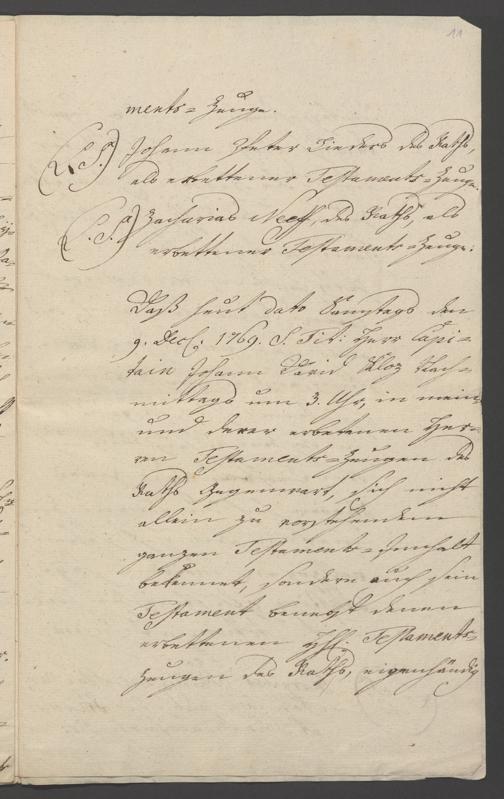 11
ments=Zeuge.
(L. S.) Johann Peter Lieders des Raths,
als erbettener Testaments=Zeuge.
(L. S.) Zacharias Neeff, des Raths, als
erbettener Testaments=Zeuge.
Daß heut dato Samstags den
9. Dec. 1769. S. Tit: Herr Capi=
tain Johann David Kloz Nach=
mittags um 3. Uhr, in mein
und derer erbettenen Her=
ren Testaments=Zeugen des
Raths Gegenwart, sich nicht
allein zu vorstehendem
ganzen Testaments=Innhalt
bekennet, sondern auch sein
Testament benebst denen
erbettenen HH: Testaments=
Zeugen des Raths, eigenhändig